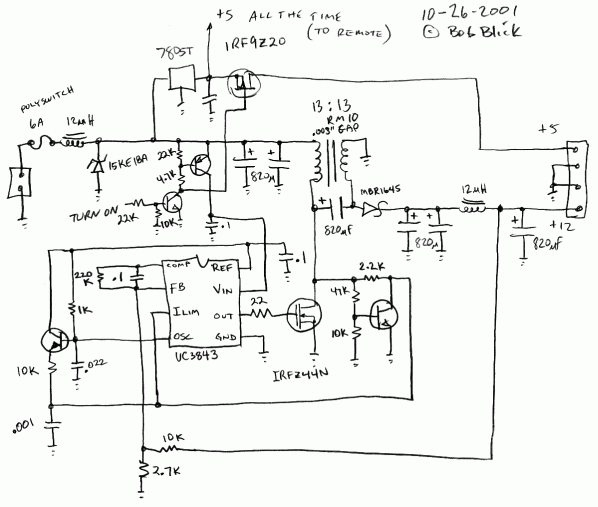 +5 ALL THE TIME
(TO REMOTE)
10-26-2001
© Bob Blick
7805T
IRF9Z20
POLYSWITCH
6A
12µH
13:13
RM10
.003" GAP
+5
15KE18A
22K
4.7K
+
+
820µ
MBR1645
12µH
TURN ON
22K
10K
.1
+
820µF
+
+
820µ
+
820µF
+12
.1
220
K
.1
COMP
REF
FB
VIN
2.2K
1K
ILIM
OUT
22
47K
OSC
GND
10K
10K
.022
UC3843
IRFZ44N
.001
10K
2.7K